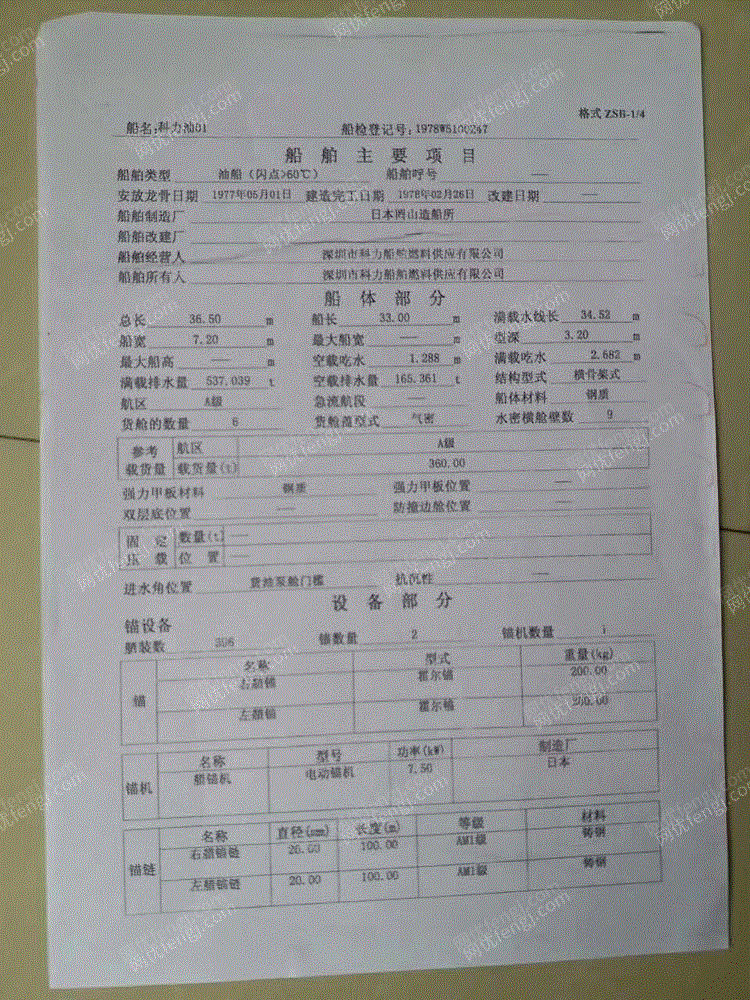 格式 ZSB-1/4
船名:科力油01 船检登记号:1978W5100247
船舶主要项目
船舶类型 油船（闪点>60℃） 船舶呼号 ——
安放龙骨日期 1977年05月01日 建造完工日期 1978年02月26日 改建日期 ——
船舶制造厂 日本岡山造船所
船舶改建厂 ——
船舶经营人 深圳市科力船舶燃料供应有限公司
船舶所有人 深圳市科力船舶燃料供应有限公司
船体部分
总长 36.50 m 船长 33.00 m 满载水线长 34.52 m
船宽 7.20 m 最大船宽 —— m 型深 3.20 m
最大船高 —— m 空载吃水 1.288 m 满载吃水 2.682 m
满载排水量 537.039 t 空载排水量 165.361 t 结构型式 横骨架式
航区 A级 急流航段 —— 船体材料 钢质
货舱的数量 6 货舱盖型式 气密 水密横舱壁数 9
参考 航区 A级
载货量 载货量(t) 360.00
强力甲板材料 钢质 强力甲板位置 ——
双层底位置 —— 防撞边舱位置 ——
固定 数量(t) ——
压载 位置 ——
进水角位置 货油泵舱门槛 抗沉性 ——
设备部分
锚设备
舾装数 306 锚数量 2 锚机数量 1
名称 型式 重量(kg)
锚 右艏锚 霍尔锚 200.00
左艏锚 霍尔锚 200.00
名称 型号 功率(kW) 制造厂
锚机 艏锚机 电动锚机 7.50 日本
名称 直径(mm) 长度(m) 等级 材料
锚链 右艏锚链 20.00 100.00 AM1级 铸钢
左艏锚链 20.00 100.00 AM1级 铸钢
网优fengj.com